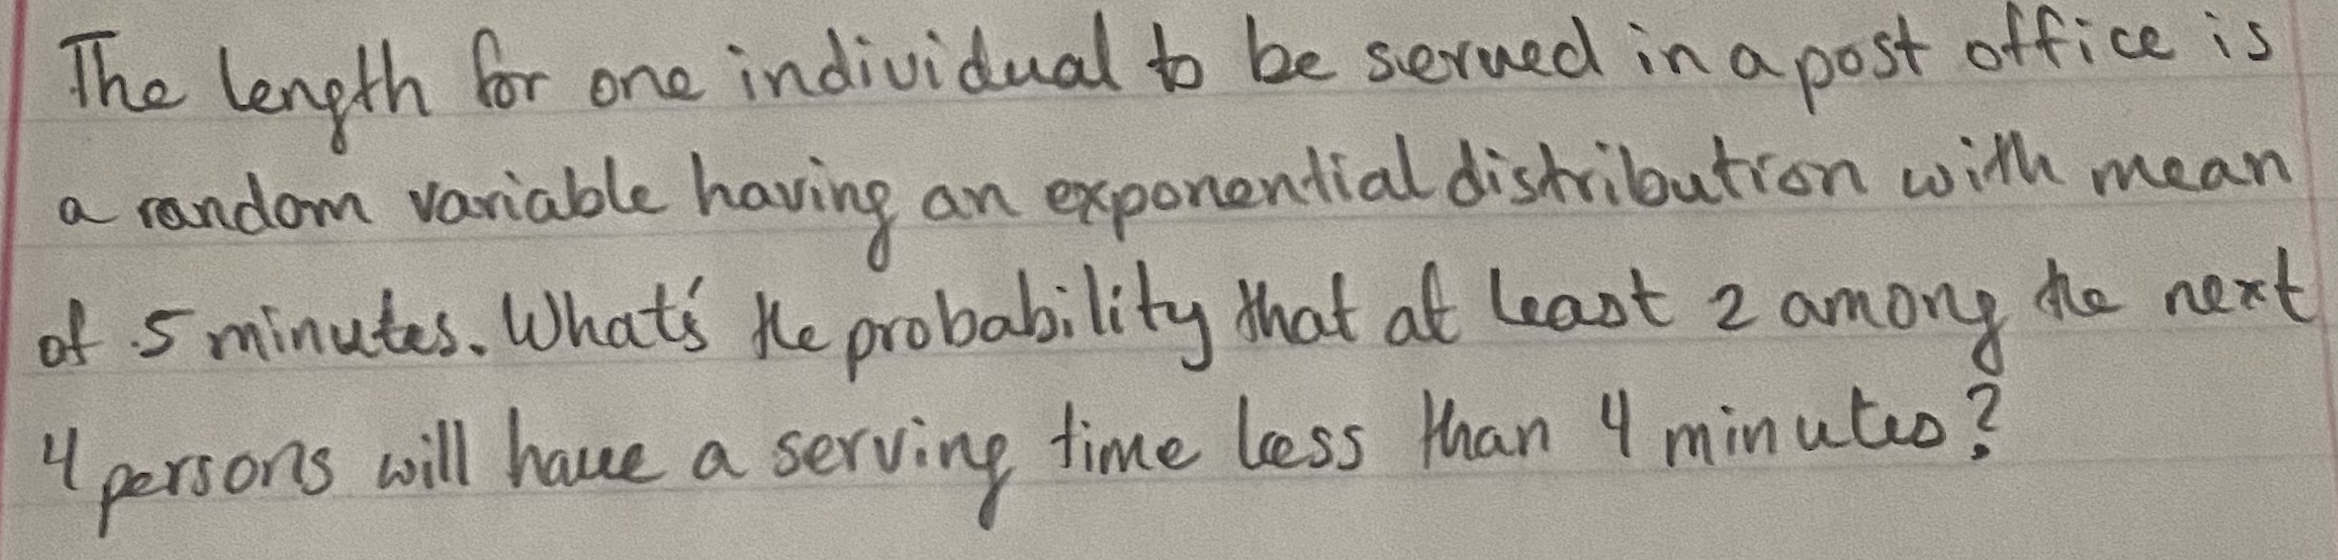 The length for one individual to be served in a post office is
a random variable having an exponential distribution with mean
of 5 minutes. What's the probability that at least 2 among the next
4 persons will have a serving time less than 4 minutes?